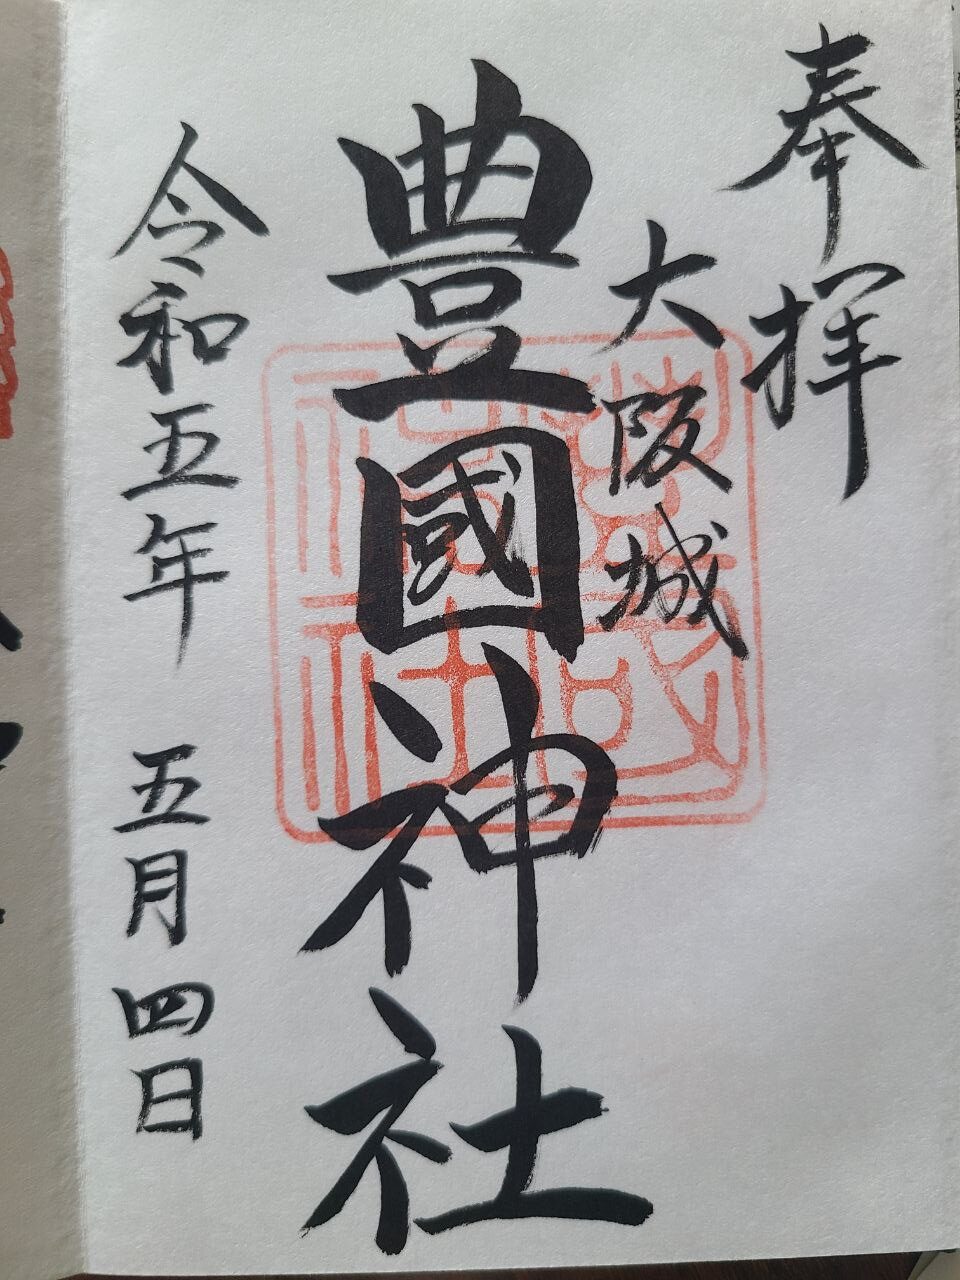 奉拝
大阪城
豊國神社
令和五年 五月四日